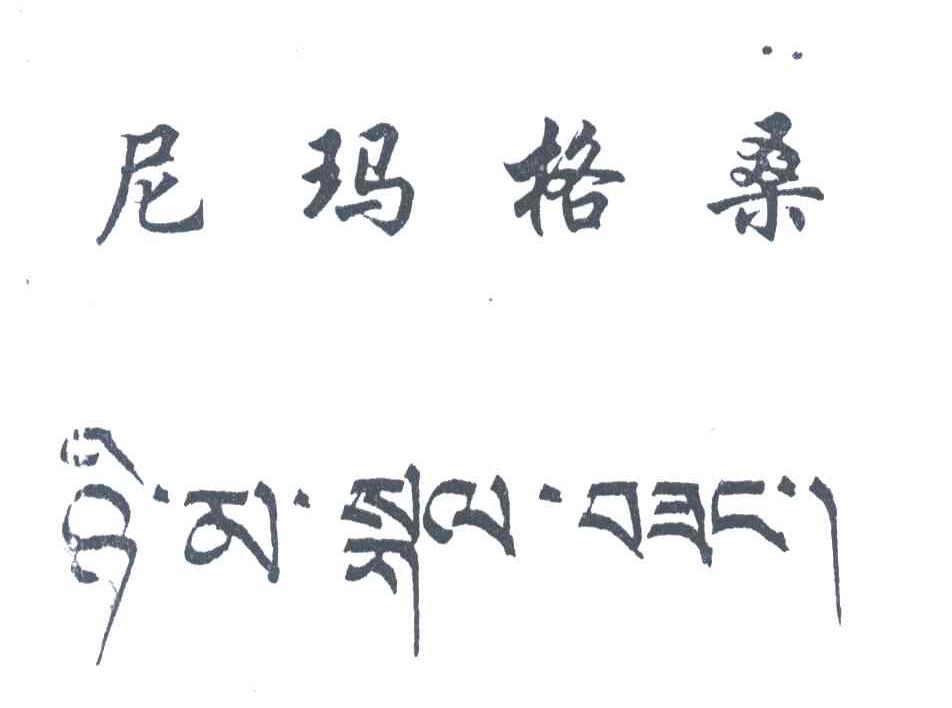 尼玛格桑
ཉི་མ་སྐལ་བཟང་།